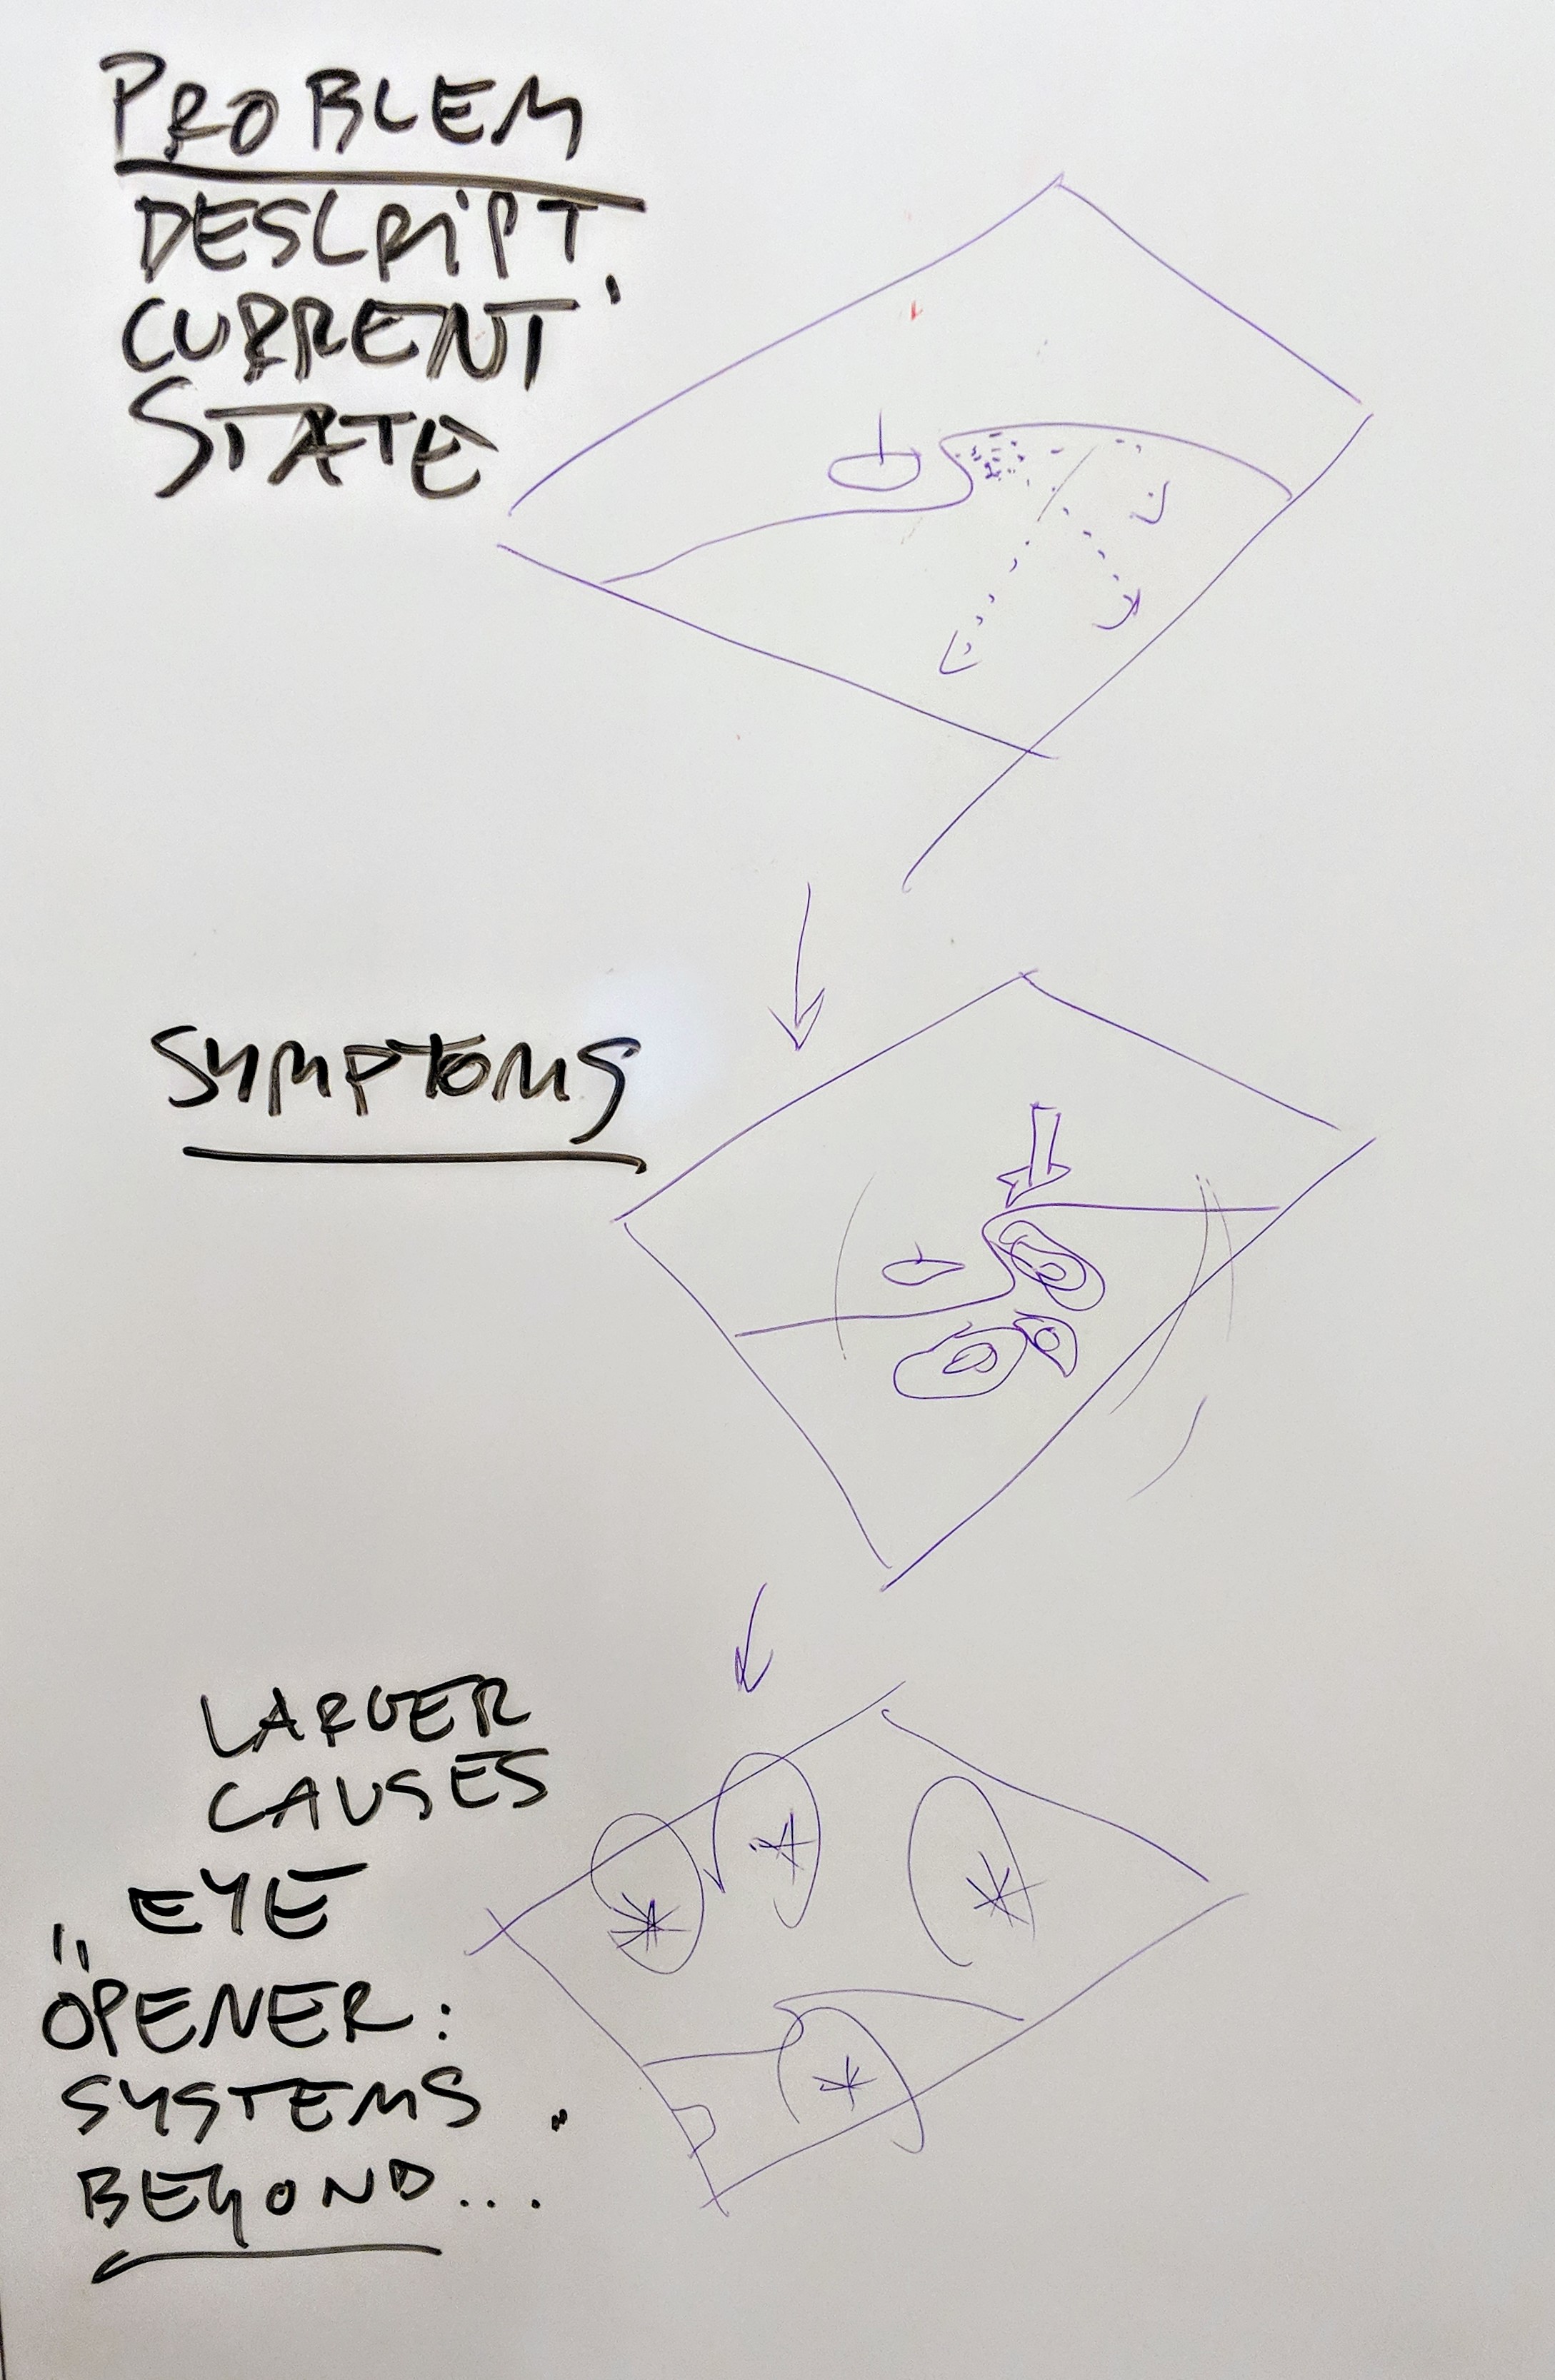 PROBLEM
DESCRIPT.
CURRENT
STATE
SYMPTOMS
LARGER
CAUSES
„EYE
OPENER:
SYSTEMS "
BEYOND...